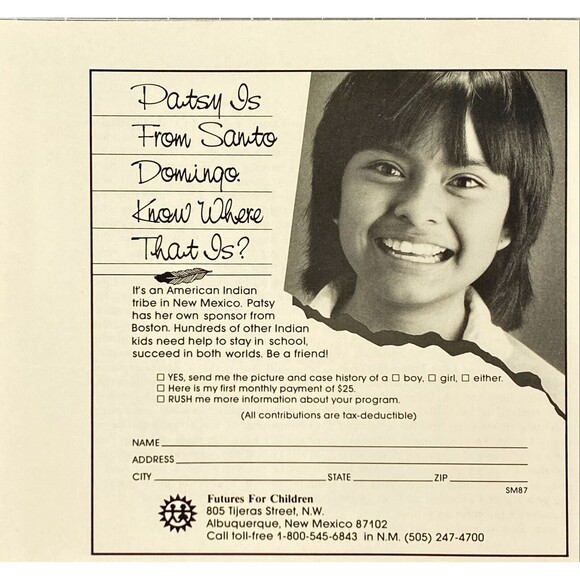 Patsy Is
From Santo
Domingo.
Know Where
That Is?
It's an American Indian
tribe in New Mexico. Patsy
has her own sponsor from
Boston. Hundreds of other Indian
kids need help to stay in school,
succeed in both worlds. Be a friend!
☐ YES, send me the picture and case history of a ☐ boy, ☐ girl, ☐ either.
☐ Here is my first monthly payment of $25.
☐ RUSH me more information about your program.
(All contributions are tax-deductible)
NAME
ADDRESS
CITY STATE ZIP
SM87
Futures For Children
805 Tijeras Street, N.W.
Albuquerque, New Mexico 87102
Call toll-free 1-800-545-6843 in N.M. (505) 247-4700